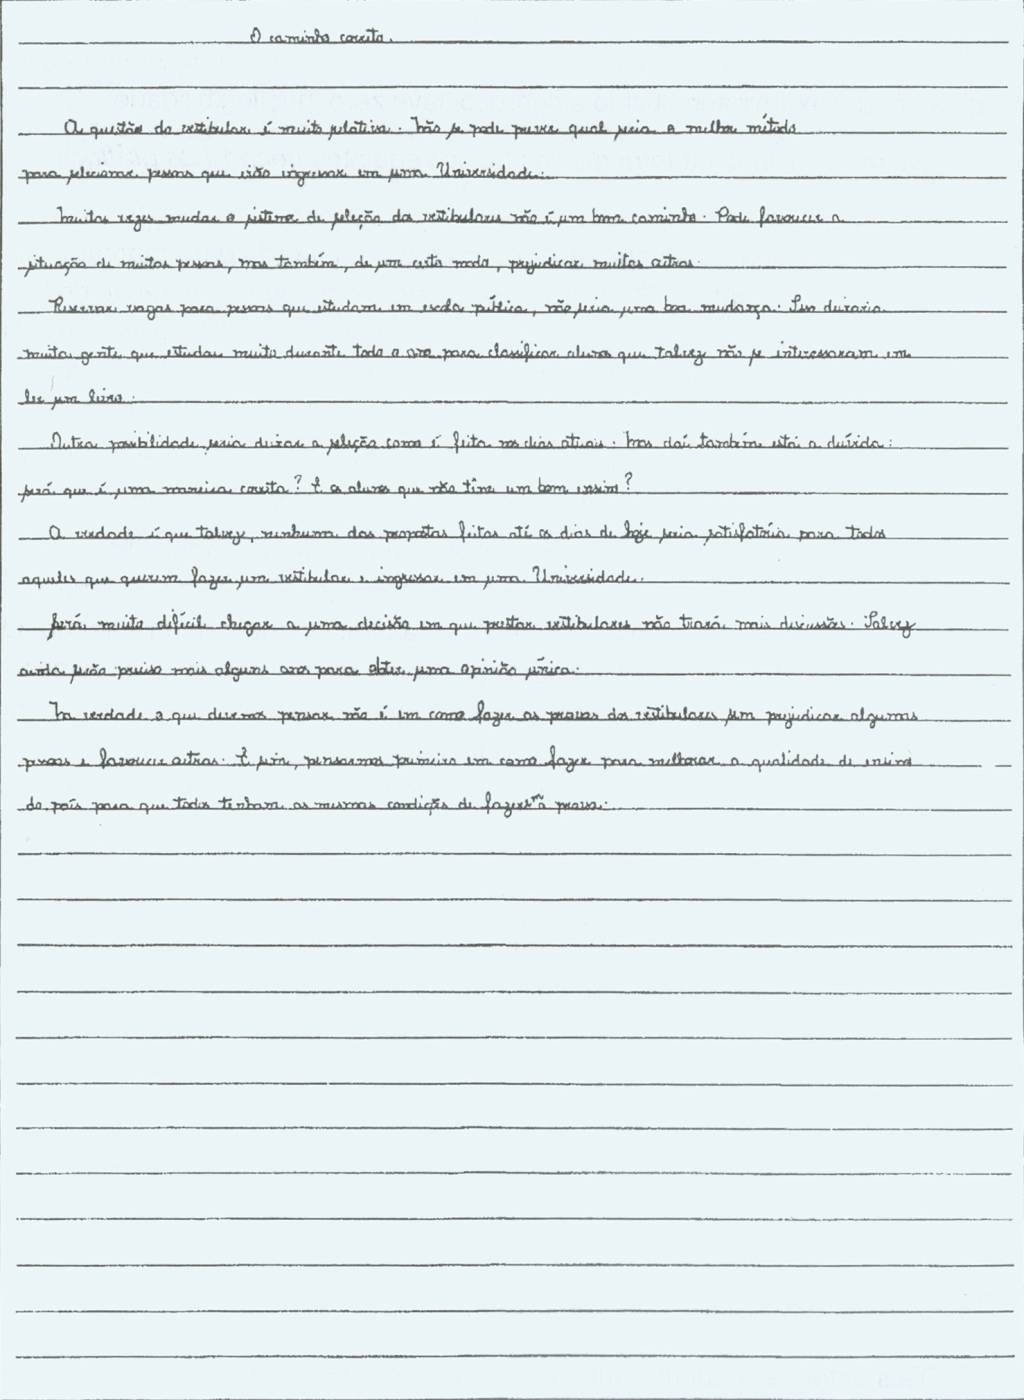 O caminho correto.
A questão do vestibular é muito relativa. Não se pode prever qual seria o melhor método
para selecionar pessoas que irão ingressar em uma Universidade.
Muitas vezes mudar o sistema de seleção dos vestibulares não é um bom caminho. Pode favorecer a
situação de muitas pessoas, mas também, de um certo modo, prejudicar muitas outras.
Reservar vagas para pessoas que estudam em escola pública, não seria uma boa mudança. Isso deixaria
muita gente que estudou muito durante todo o ano para classificar alunos que talvez não se interessaram em
ler um livro.
Outra possibilidade seria deixar a seleção como é feita nos dias atuais. Mas daí também está a dúvida:
será que é uma maneira correta? E os alunos que não têm um bom ensino?
A verdade é que talvez, nenhuma das propostas feitas até os dias de hoje seria satisfatória para todos
aqueles que querem fazer um vestibular e ingressar em uma Universidade.
Será muito difícil chegar a uma decisão em que prestar vestibulares não trará mais discussões. Talvez
ainda serão preciso mais alguns anos para obter uma opinião única.
Na verdade o que devemos pensar não é em como fazer as provas dos vestibulares sem prejudicar algumas
pessoas e favorecer outras. E sim, pensarmos primeiro em como fazer para melhorar a qualidade de ensino
do país para que todos tenham as mesmas condições de fazerem a prova.